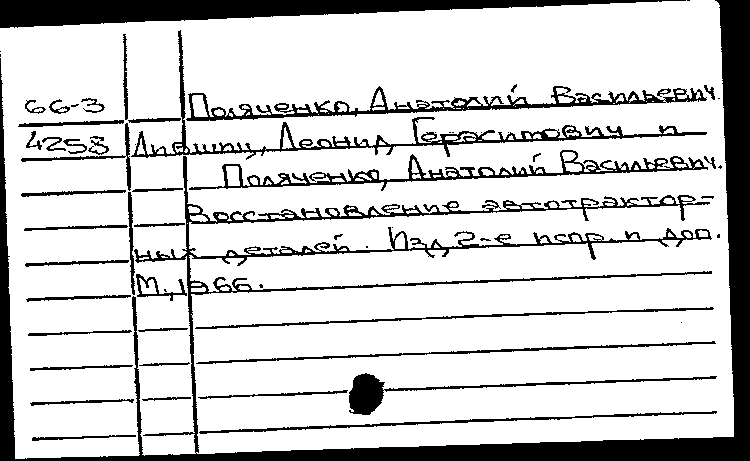 66-3 Поляченко, Анатолий Васильевич
4258 Лившиц, Леонид Герасимович и
Поляченко, Анатолий Васильевич.
Восстановление автотрактор-
ных деталей. Изд, 2-е испр. и доп.
М., 1966.